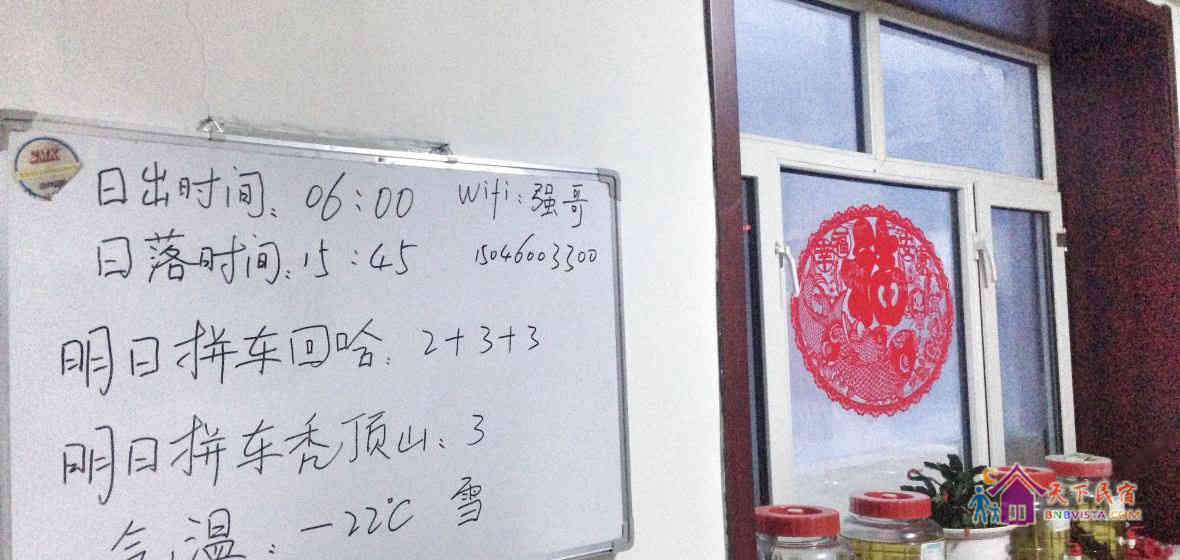 日出时间: 06:00 Wifi: 强哥
日落时间: 15:45 15046003300
明日拼车回哈: 2+3+3
明日拼车秃顶山: 3
气温: -22℃ 雪
天下民宿
BNBVISTA.COM